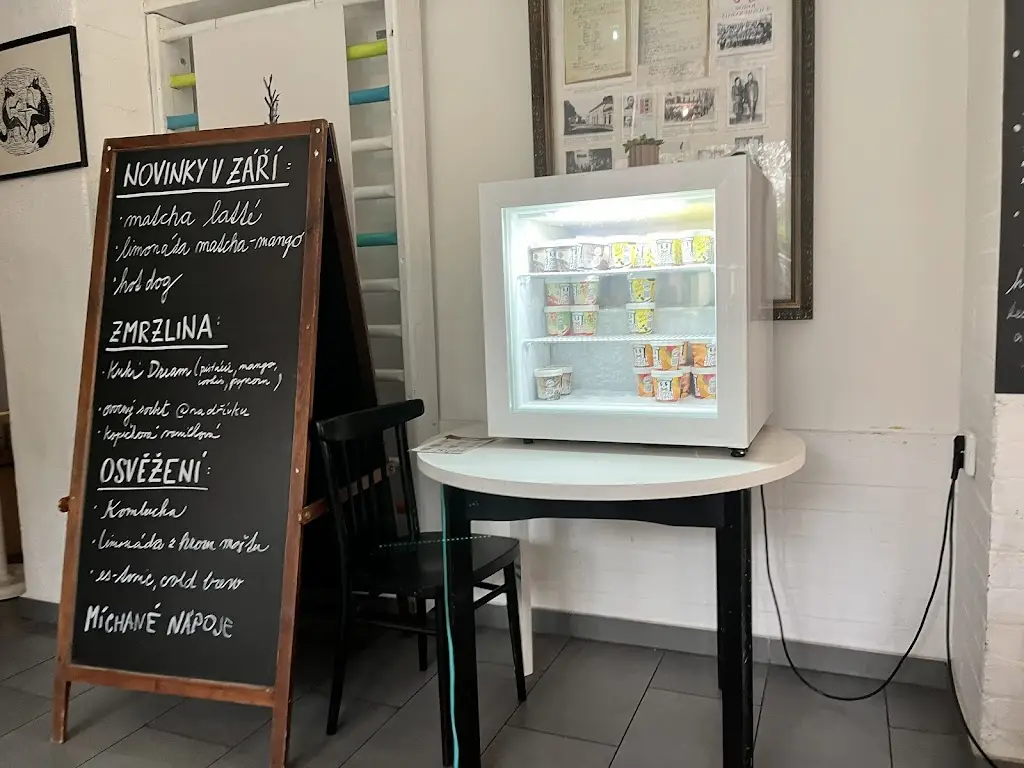 NOVINKY V ZÁŘÍ:
· matcha latté
· limonáda matcha-mango
· hot dog
ZMRZLINA:
· Kuki Dream (pistácie, mango,
cookies, popcorn)
· ovocný sorbet @nadřívku
· kopečková vanilková
OSVĚŽENÍ:
· Kombucha
· limonáda z hroz. moštu
· es-tonic, cold brew
MÍCHANÉ NÁPOJE